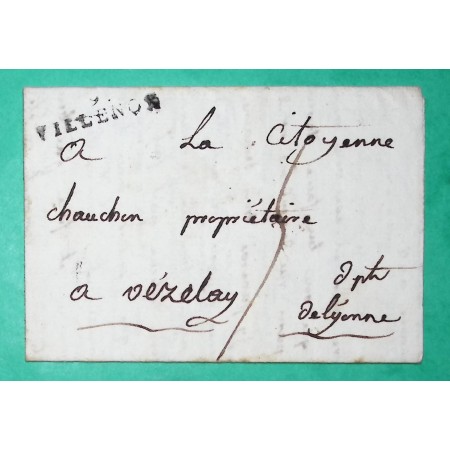 VILLENOX
a La Citoyenne
chauchon propriétaire
a vézelay
dpth
delyonne